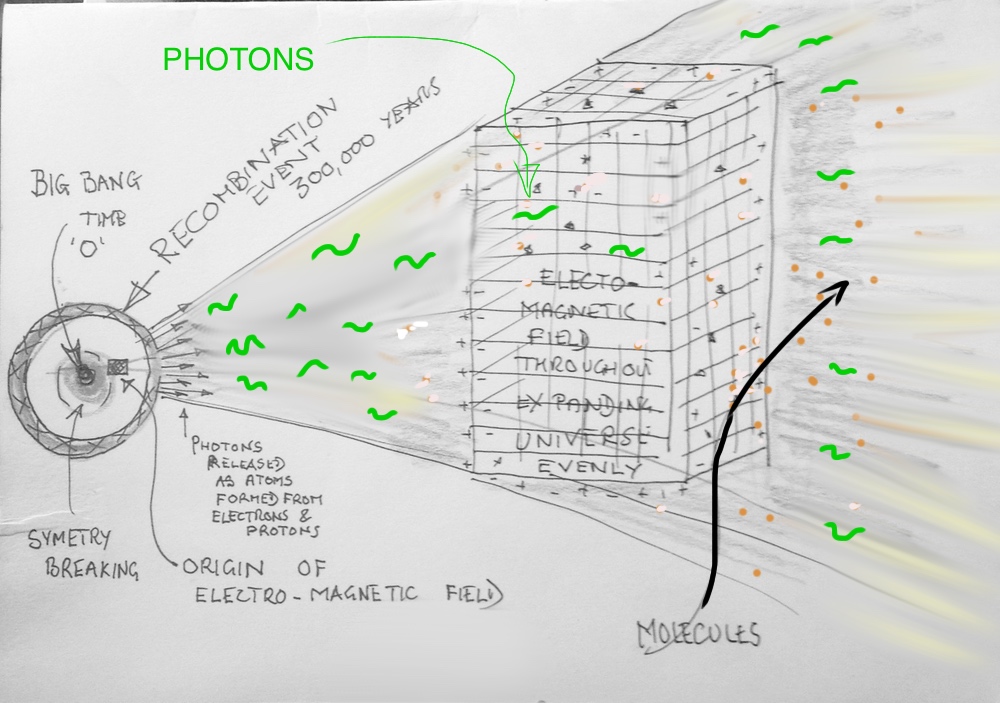 PHOTONS
RECOMBINATION
EVENT
300,000 YEARS
BIG BANG
TIME
'O'
ELECTO-
MAGNETIC
FIELD
THROUGHOUT
EXPANDING
UNIVERSE
EVENLY
PHOTONS
RELEASED
AS ATOMS
FORMED FROM
ELECTRONS &
PROTONS
SYMETRY
BREAKING
ORIGIN OF
ELECTRO-MAGNETIC FIELD
MOLECULES